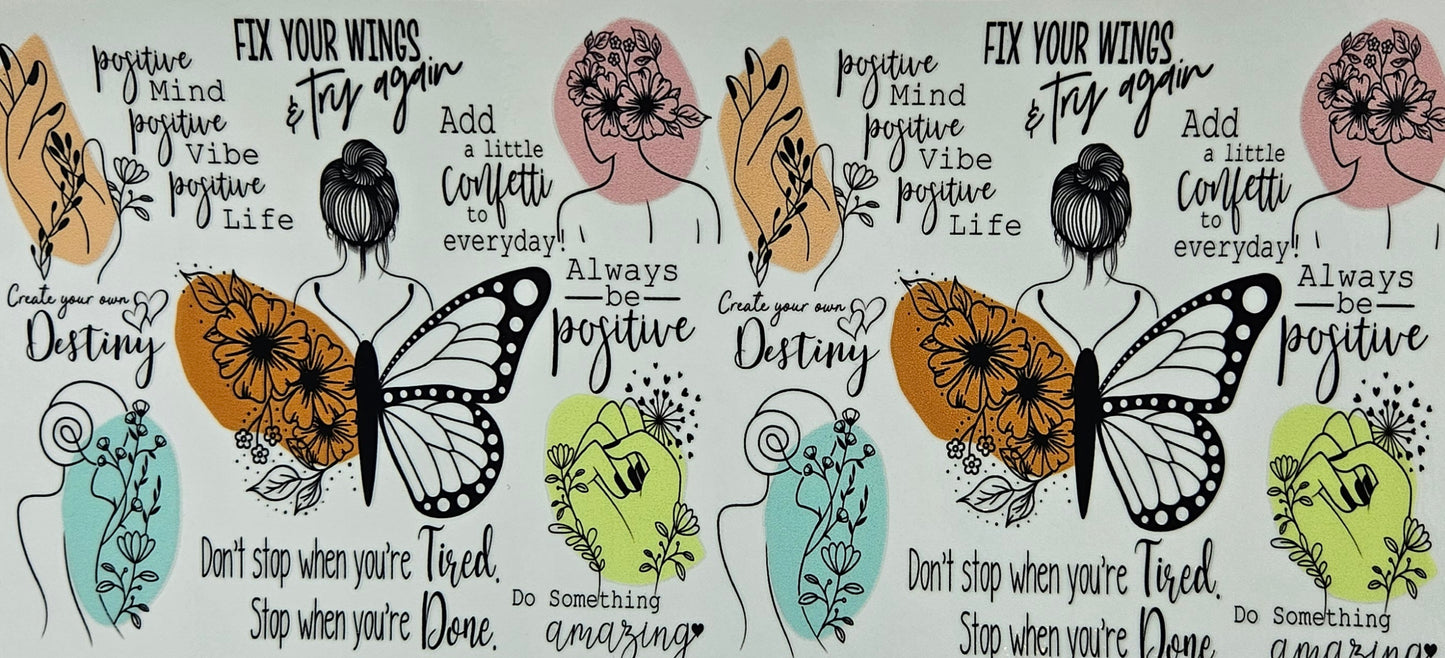 FIX YOUR WINGS
& Try again
positive
Mind
positive
Vibe
positive
Life
Add
a little
Confetti
to
everyday!
Create your own
Destiny
Always
be
positive
Don't stop when you're Tired.
Stop when you're Done.
Do Something
amazing
FIX YOUR WINGS
& Try again
positive
Mind
positive
Vibe
positive
Life
Add
a little
Confetti
to
everyday!
Create your own
Destiny
Always
be
positive
Don't stop when you're Tired.
Stop when you're Done
Do Something
amazing